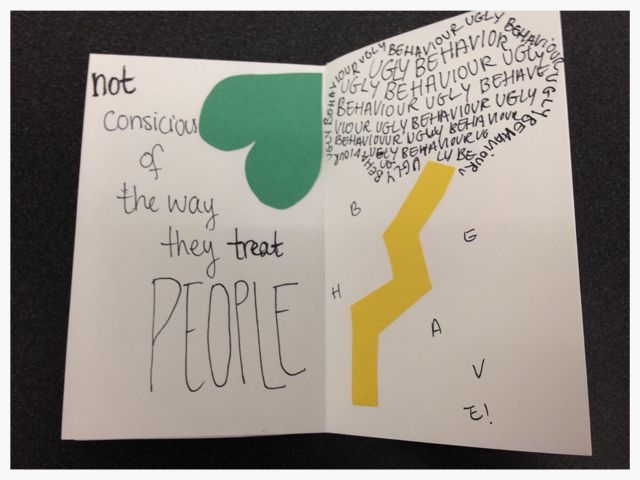 not
consicious
of
the way
they treat
PEOPLE
UGLY BEHAVIOUR UGLY BEHAVIOUR UGLY BEHAVIOUR UGLY BEHAVIOUR
UGLY BEHAVIOR
UGLY BEHAVIOUR UGLY
BEHAVIOUR UGLY BEHAVE
VIOUR UGLY BEHAVIOUR UGLY
BEHAVIOUR UGLY BEHAVIOUR
UGLY BEHAVIOUR UG
BEHA UGLY UGLY BE
B
E
H
A
V
E!